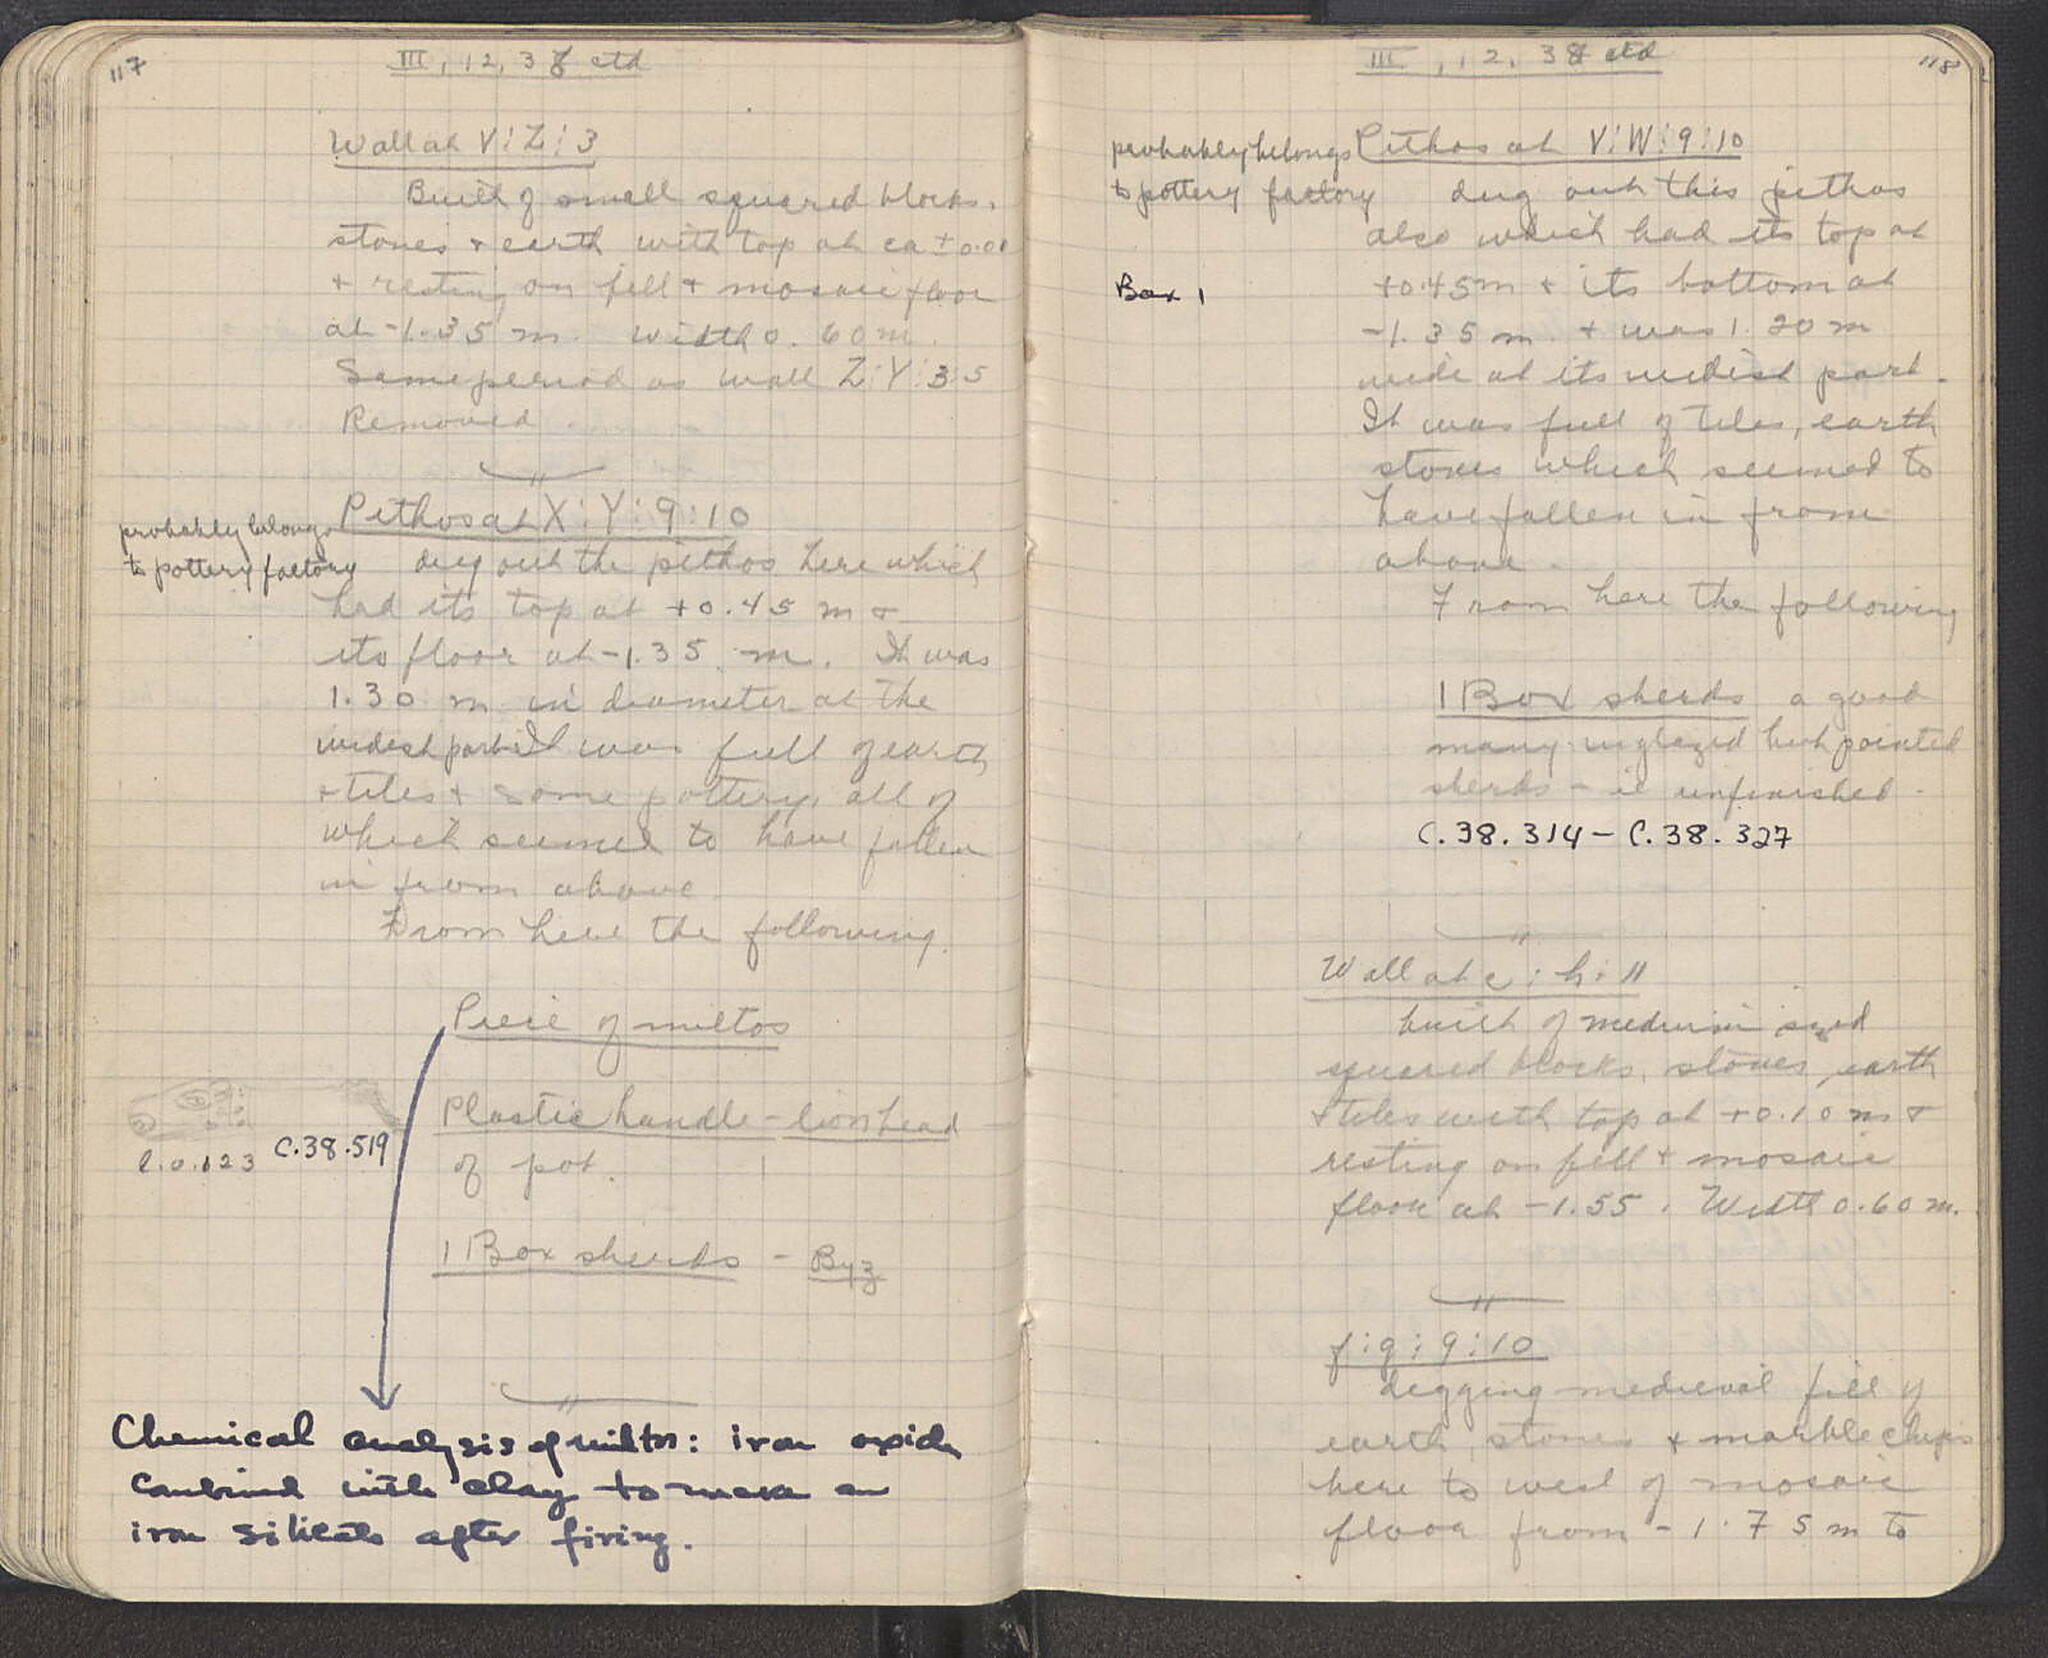 117
III, 12, 38 ctd
Wall at V:Z:3
Built of small squared blocks,
stones + earth with top at ca ± 0.00
+ resting on fill + mosaic floor
at -1.35 m. width 0.60 m.
Same period as wall Z:Y:3:5
Removed.
Pithos at X:Y:9:10
probably belongs
to pottery factory
dug out the pithos here which
had its top at +0.45 m +
its floor at -1.35 m. It was
1.30 m in diameter at the
widest part. It was full of earth
+ tiles + some pottery, all of
which seemed to have fallen
in from above
From here the following.
Piece of miltos
Plastic handle - lion head
of pot.
C.38.519
l. 0.123
1 Box sherds - Byz
Chemical analysis of miltos: iron oxide
combined with clay to make an
iron silicate after firing.
118
III, 12, 38 ctd
probably belongs
to pottery factory
Box 1
Pithos at V:W:9:10
dug out this pithos
also which had its top at
+0.45m + its bottom at
-1.35 m. + was 1.20 m
wide at its widest part.
It was full of tiles, earth
stones which seemed to
have fallen in from
above.
From here the following
1 Box sherds a good
many unglazed but painted
sherds - ie unfinished -
C.38.314 - C.38.327
Wall at c:h:11
built of medium sized
squared blocks, stones, earth
+ tiles with top at +0.10 m +
resting on fill + mosaic
floor at -1.55. Width 0.60 m.
f:g:9:10
digging medieval fill of
earth, stones + marble chips
here to west of mosaic
floor from -1.75 m to